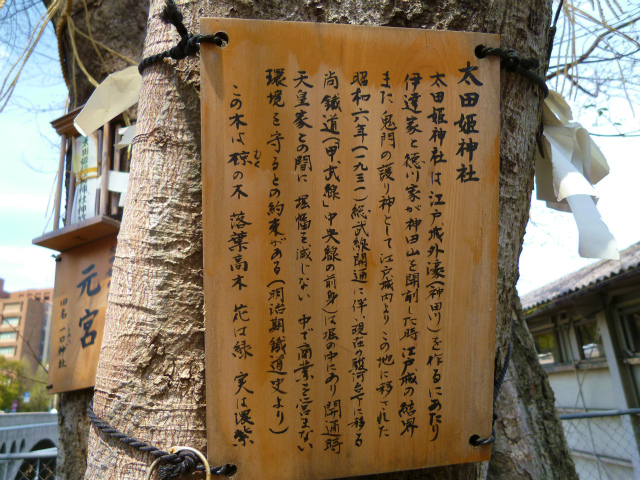 太田姫神社
太田姫神社は江戸城外濠(神田川)を作るにあたり
伊達家と徳川家が神田山を開削した時江戸城の結界
また鬼門の護り神として江戸城内よりこの地に移された
昭和六年(一九三一)総武線開通に伴い現在の駿河台下に移る
尚鐵道(「甲武線」中央線の前身)は濠の中にあり開通時
天皇家との間に堀幅を減じない 中で商業を営まない
環境を守るとの約束がある(明治期鐵道史より)
この木は椋の木 落葉高木 花は緑 実は濃紫
むく
元宮
旧名 一口神社